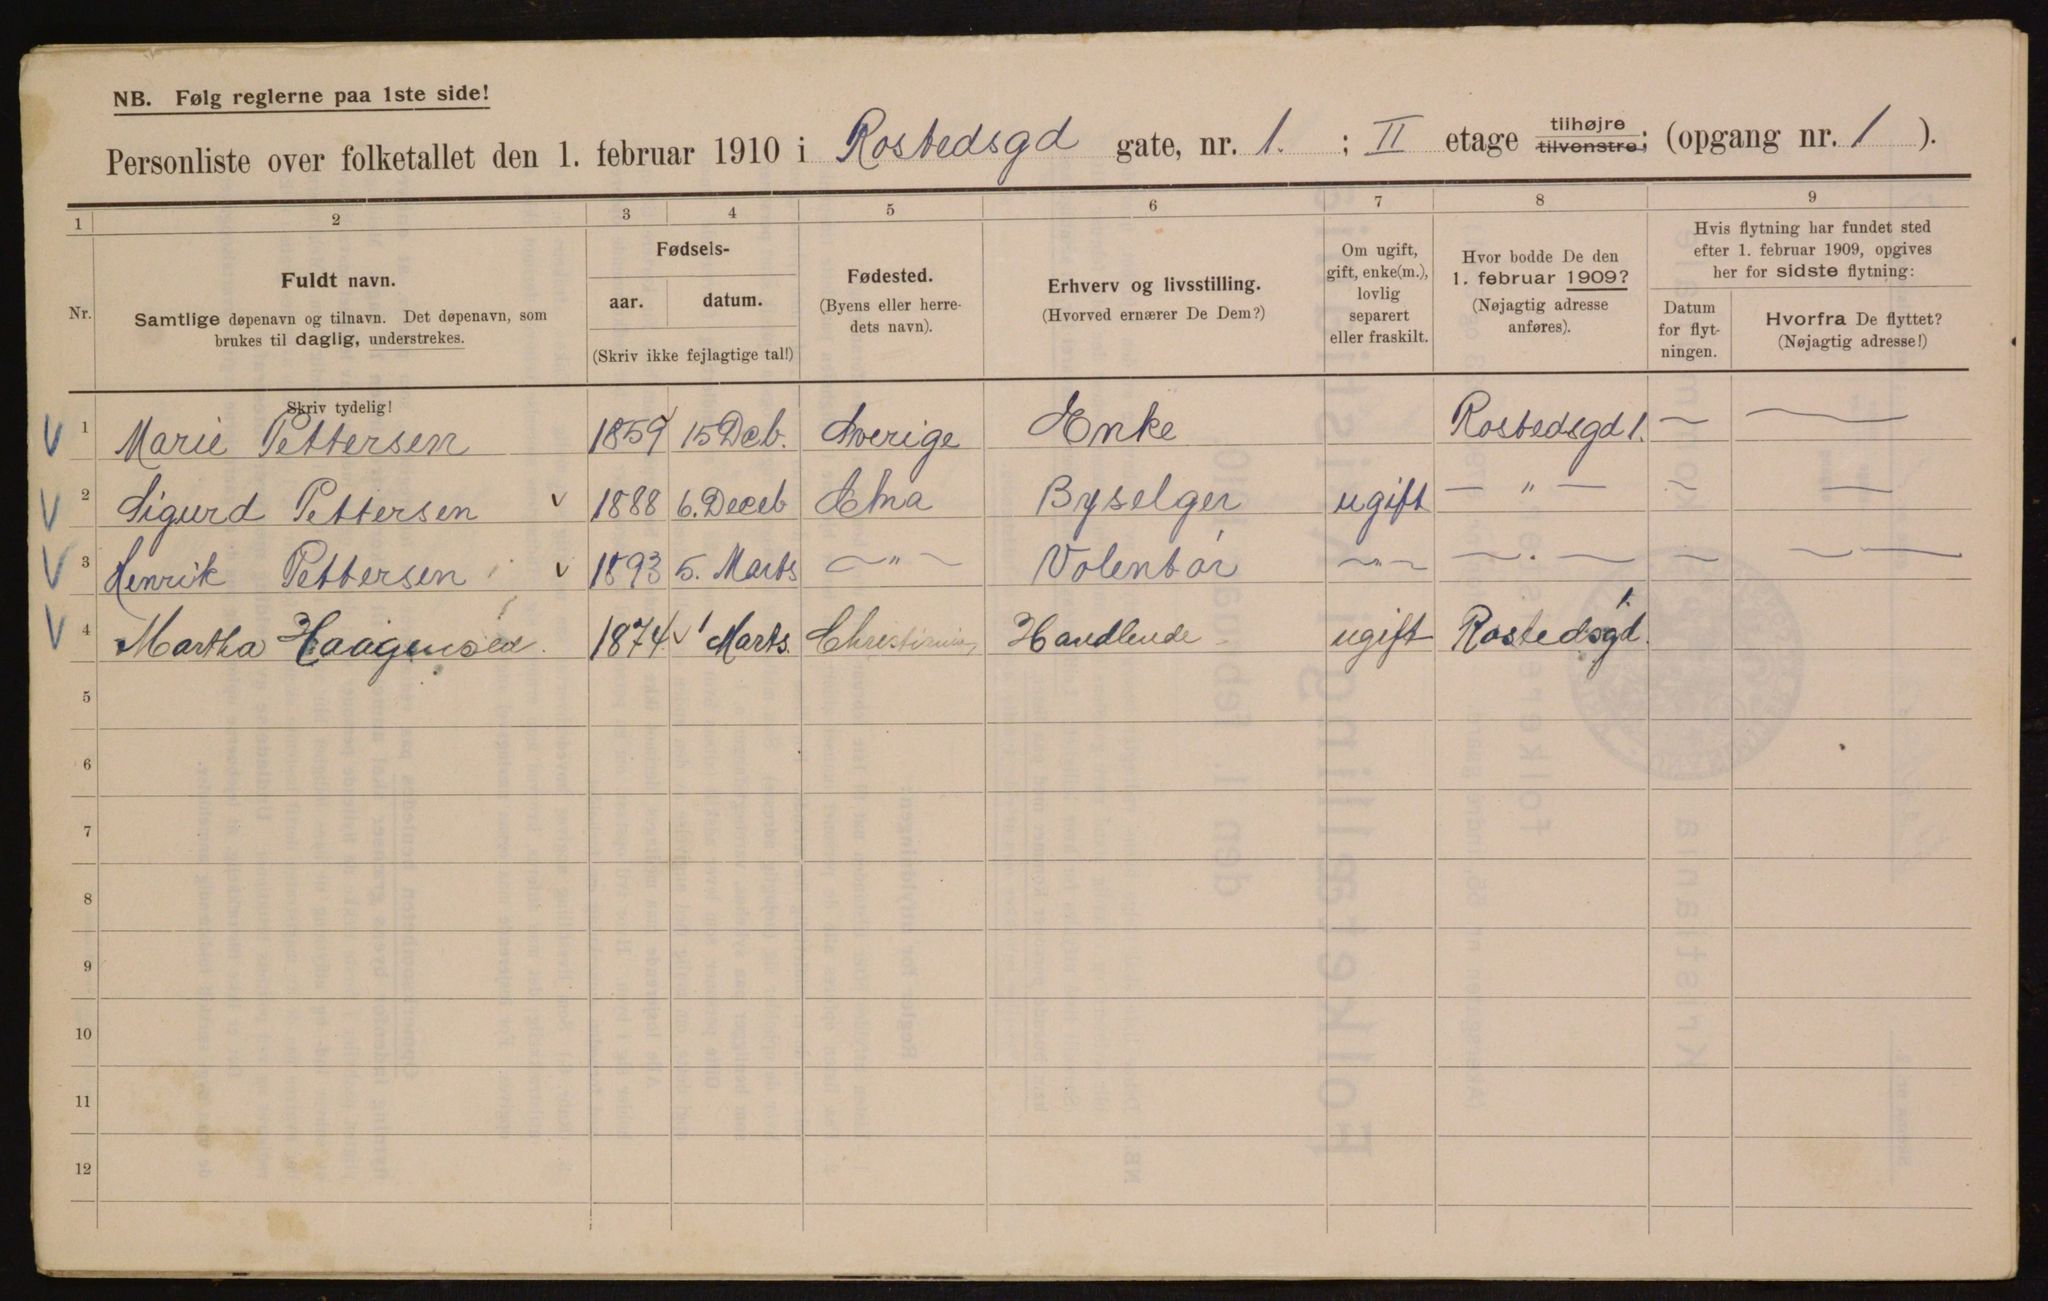 NB. Følg reglerne paa 1ste side!
Personliste over folketallet den 1. februar 1910 i Rostedsgd gate, nr. 1. ; II etage tilhøjre tilvenstre; (opgang nr. 1 ).
1 2 3 4 5 6 7 8 9
Nr. Fuldt navn. Samtlige døpenavn og tilnavn. Det døpenavn, som brukes til daglig, understrekes.
Fødsels- aar. datum. (Skriv ikke fejlagtige tal!)
Fødested. (Byens eller herredets navn).
Erhverv og livsstilling. (Hvorved ernærer De Dem?)
Om ugift, gift, enke(m.), lovlig separert eller fraskilt.
Hvor bodde De den 1. februar 1909? (Nøjagtig adresse anføres).
Hvis flytning har fundet sted efter 1. februar 1909, opgives her for sidste flytning:
Datum for flytningen.
Hvorfra De flyttet? (Nøjagtig adresse!)
Skriv tydelig!
V 1 Marie Pettersen 1859 15 Dcb. Sverige Enke Rostedsgd 1. — —
V 2 Sigurd Pettersen v 1888 6. Deceb Byselger ugift — " — — —
V 3 Henrik Pettersen v 1893 5. Marts — " — Volentør — " — — . — — — —
V 4 Martha Haagensen. 1874 v 1 Marts. Christiania Handlende ugift Rostedsgd. 1.
5
6
7
8
9
10
11
12